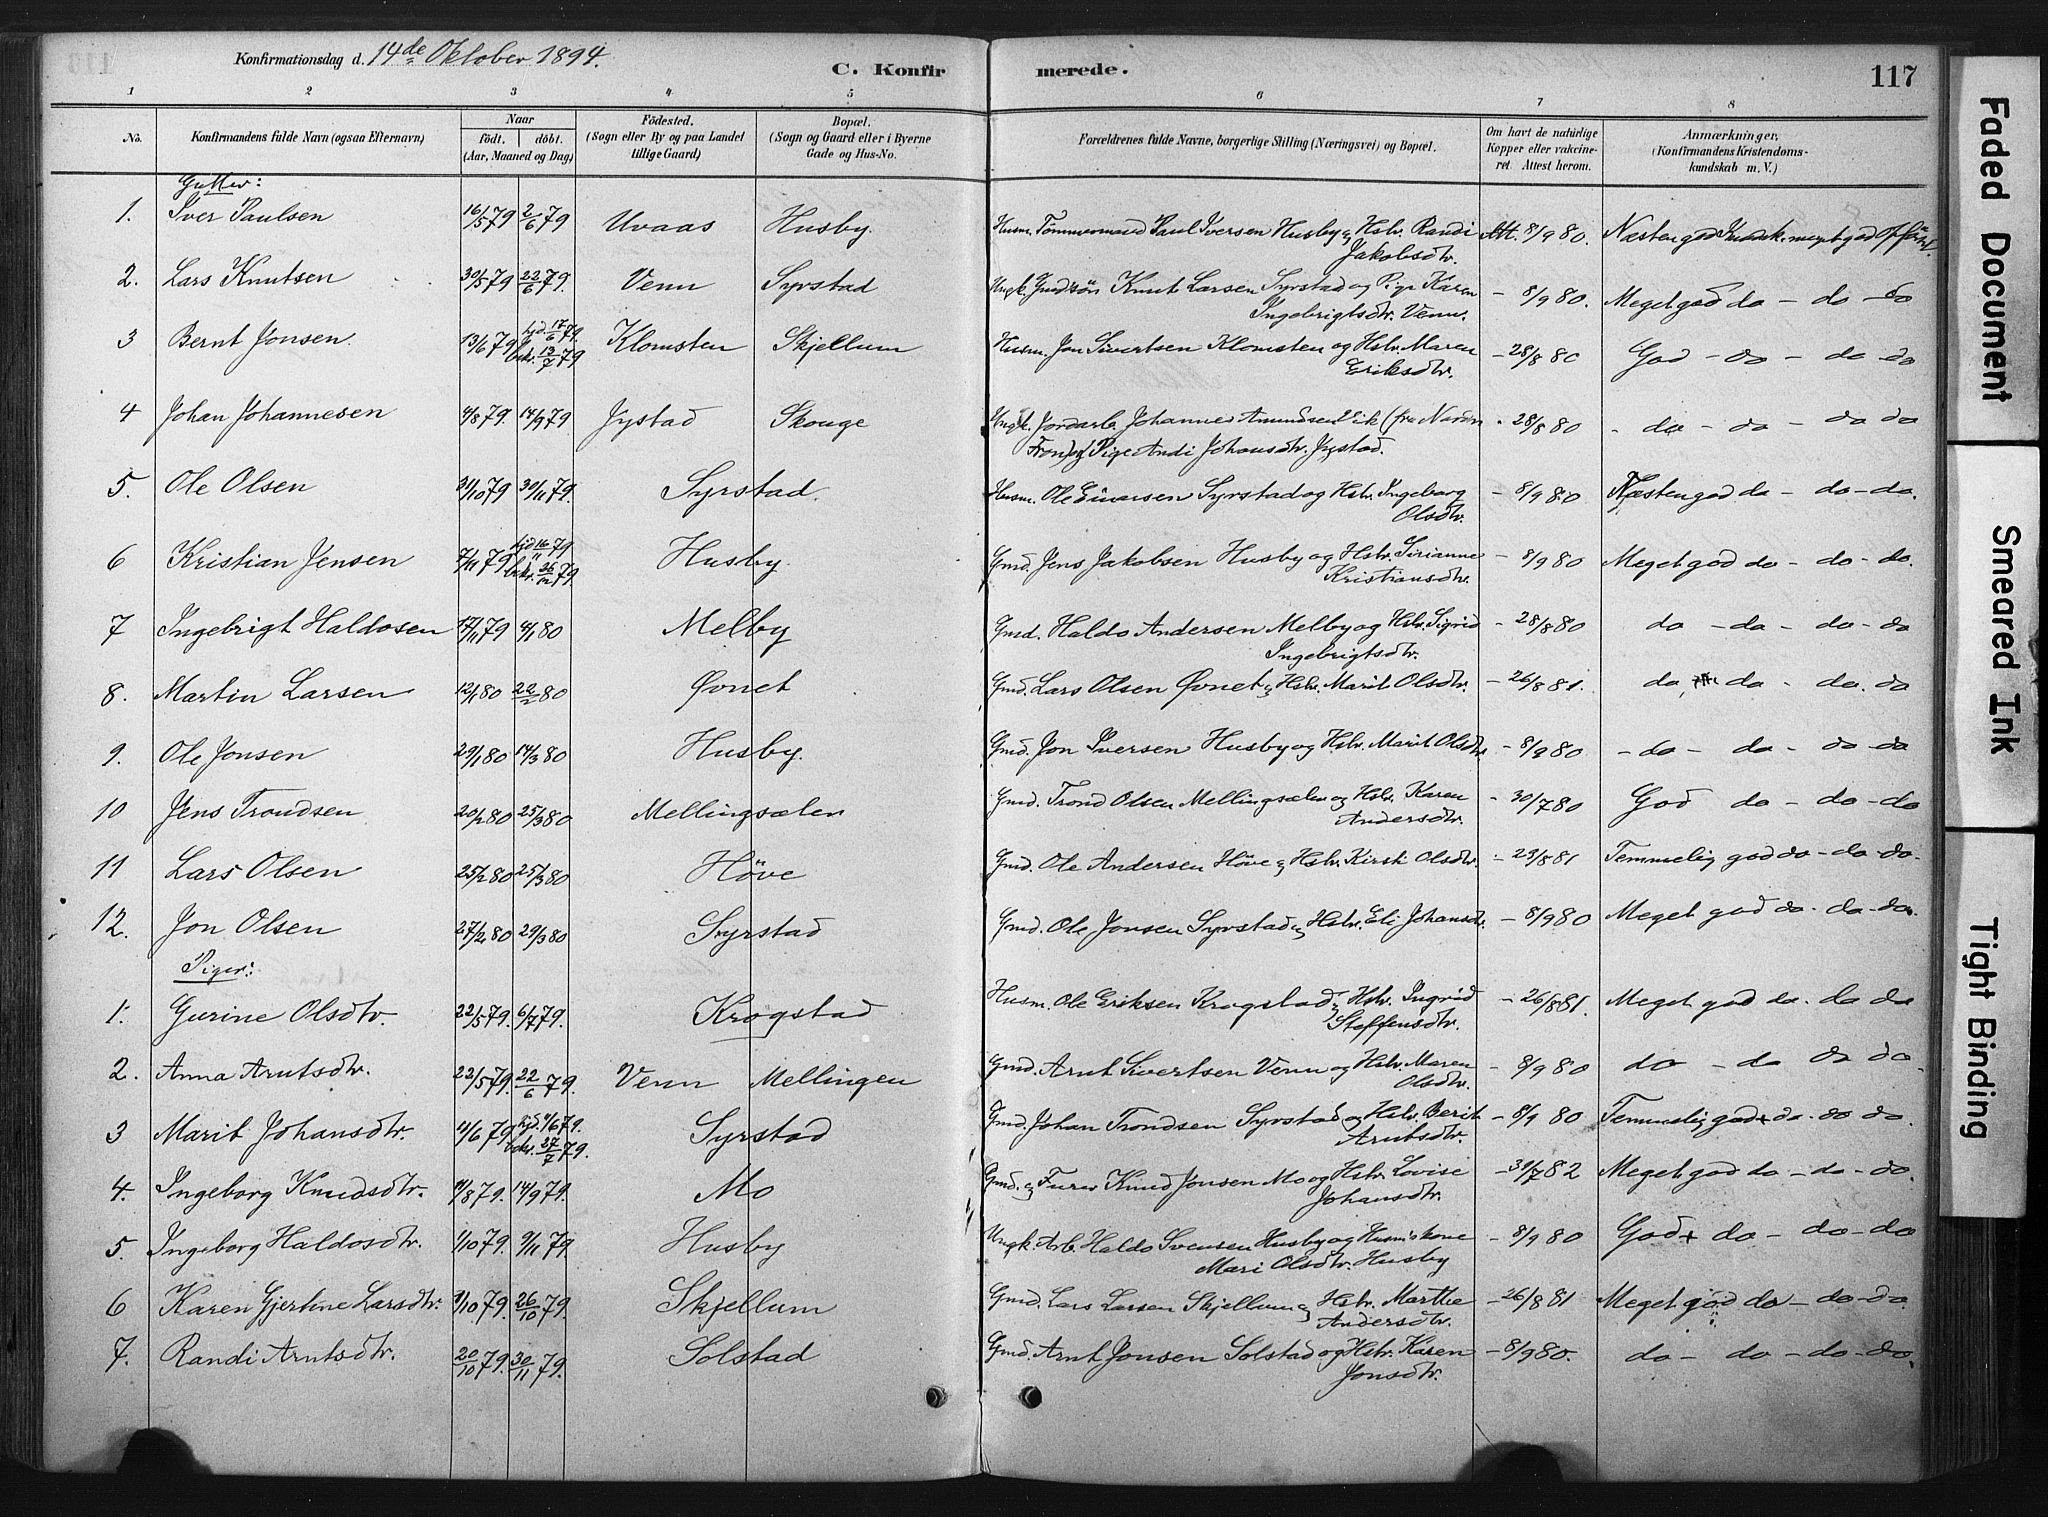 Konfirmationsdag d. 14de Oktober 1894.
C. Konfirmerede.
117
1 2 3 4 5 6 7 8
No. Konfirmandens fulde Navn (ogsaa Efternavn) Naar født. døbt. (Aar, Maaned og Dag) Fødested. (Sogn eller By og paa Landet tillige Gaard) Bopæl. (Sogn og Gaard eller i Byerne Gade og Hus-No. Forældrenes fulde Navne, borgerlige Stilling (Næringsvei) og Bopæl. Om havt de naturlige Kopper eller vakcineret. Attest herom. Anmærkninger. (Konfirmandens Kristendomskundskab m. V.)
Gutter:
1. Iver Paulsen 16/5 79 2/6 79 Uvaas Husby Husm. Tömmermand Paul Iversen Husby og Hstr. Randi Jakobsdtr. Att. 8/9 80. Næsten god Kundsk. meget god Opførsel
2. Lars Knutsen 30/5 79 22/6 79. Venn Syrstad Ungk. Gmdsön Knut Larsen Syrstad og Pige Karen Ingebrigtsdtr. Venn. - 8/9 80. Meget god do - do - do
3 Bernt Jonsen. 13/6 79 hjd. 17/6 79. bekr. 13/7 79 Klomsten Skjellum Husm. Jon Sivertsen Klomsten og Hstr. Maren Eriksdtr. - 28/8 80 God - do - do - do
4 Johan Johannesen 4/8 79. 14/9 79 Jystad Skouge Ungk. Jordarb. Johannes Amundsen Vik (fra Nordre Fron) og Pige Andi Johansdtr. Jystad. - 28/8 80 - do - do - do do
5. Ole Olsen 31/10 79 30/11 79. Syrstad. Husm. Ole Einarsen Syrstad og Hstr. Ingeborg Olsdtr. - 8/9 80 Næsten god do - do - do.
6 Kristian Jensen 7/11 79 hjd 16/11 79 bekr. 26/12 79. Husby. Gmd. Jens Jakobsen Husby og Hstr. Sirianne Kristiansdtr. - 8/9 80 Meget god do - do - do.
7 Ingebrigt Haldosen 17/11 79 4/1 80 Melby Gmd. Haldo Andersen Melby og Hstr. Sigrid Ingebrigtsdtr. - 28/8 80 do - do - do - do
8. Martin Larsen 12/1 80 22/2 80 Øvnet Gmd. Lars Olsen Øvnet og Hstr. Marit Olsdtr. - 26/8 81. do do - do. do
9. Ole Jonsen 29/1 80 14/3 80 Husby. Gmd. Jon Iversen Husby og Hstr. Marit Olsdtr. - 8/9 80 - do - do - do - do
10 Jens Trondsen 20/2 80 25/3 80 Mellingsælen Gmd. Trond Olsen Mellingsælen og Hstr. Karen Andersdtr. - 30/7 80 God do - do - do
11 Lars Olsen 25/2 80 25/3 80 Höve Gmd. Ole Andersen Höve og Hstr. Kirsti Olsdtr. - 29/8 81 Temmelig god do - do - do.
12. Jon Olsen 27/2 80 29/3 80 Syrstad Gmd. Ole Jonsen Syrstad og Hstr. Eli Johansdtr. - 8/9 80 Meget god do - do - do.
Piger:
1. Gurine Olsdtr. 22/5 79. 6/7 79. Krogstad Husm. Ole Eriksen Krogstad og Hstr. Ingrid Steffensdtr. - 26/8 81. Meget god do. do do
2. Anna Arntsdtr. 22/5 79. 22/6 79. Venn Mellingen Gmd. Arnt Sivertsen Venn og Hstr. Maren Olsdtr. - 8/9 80 do - do do - do.
3 Marit Johansdtr. 11/6 79 hjd. 11/6 79. bekr. 27/7 79. Syrstad Gmd. Johan Trondsen Syrstad og Hstr. Berit Arntsdtr. - 8/9 80 Temmelig god do. do do
4. Ingeborg Knudsdtr. 11/8 79. 14/9 79. Mo Gmd. og Furer Knud Jonsen Mo og Hstr. Lovise Johansdtr. - 31/7 82 Meget god do - do - do.
5. Ingeborg Haldosdtr. 1/10 79. 9/11 79. Husby Ungk. Arb. Haldo Svensen Husby og Husmskone Mari Olsdtr. Husby - 8/9 80 God do - do - do
6 Karen Gjertine Larsdtr. 1/10 79. 26/10 79. Skjellum Gmd. Lars Larsen Skjellum og Hstr. Marthe Andersdtr. - 26/8 81 Meget god do - do - do.
7. Randi Arntsdtr. 20/10 79. 30/11 79. Solstad Gmd. Arnt Jonsen Solstad og Hstr. Karen Jonsdtr. - 8/9 80. do - do - do - do.
Faded Document
Smeared Ink
Tight Binding